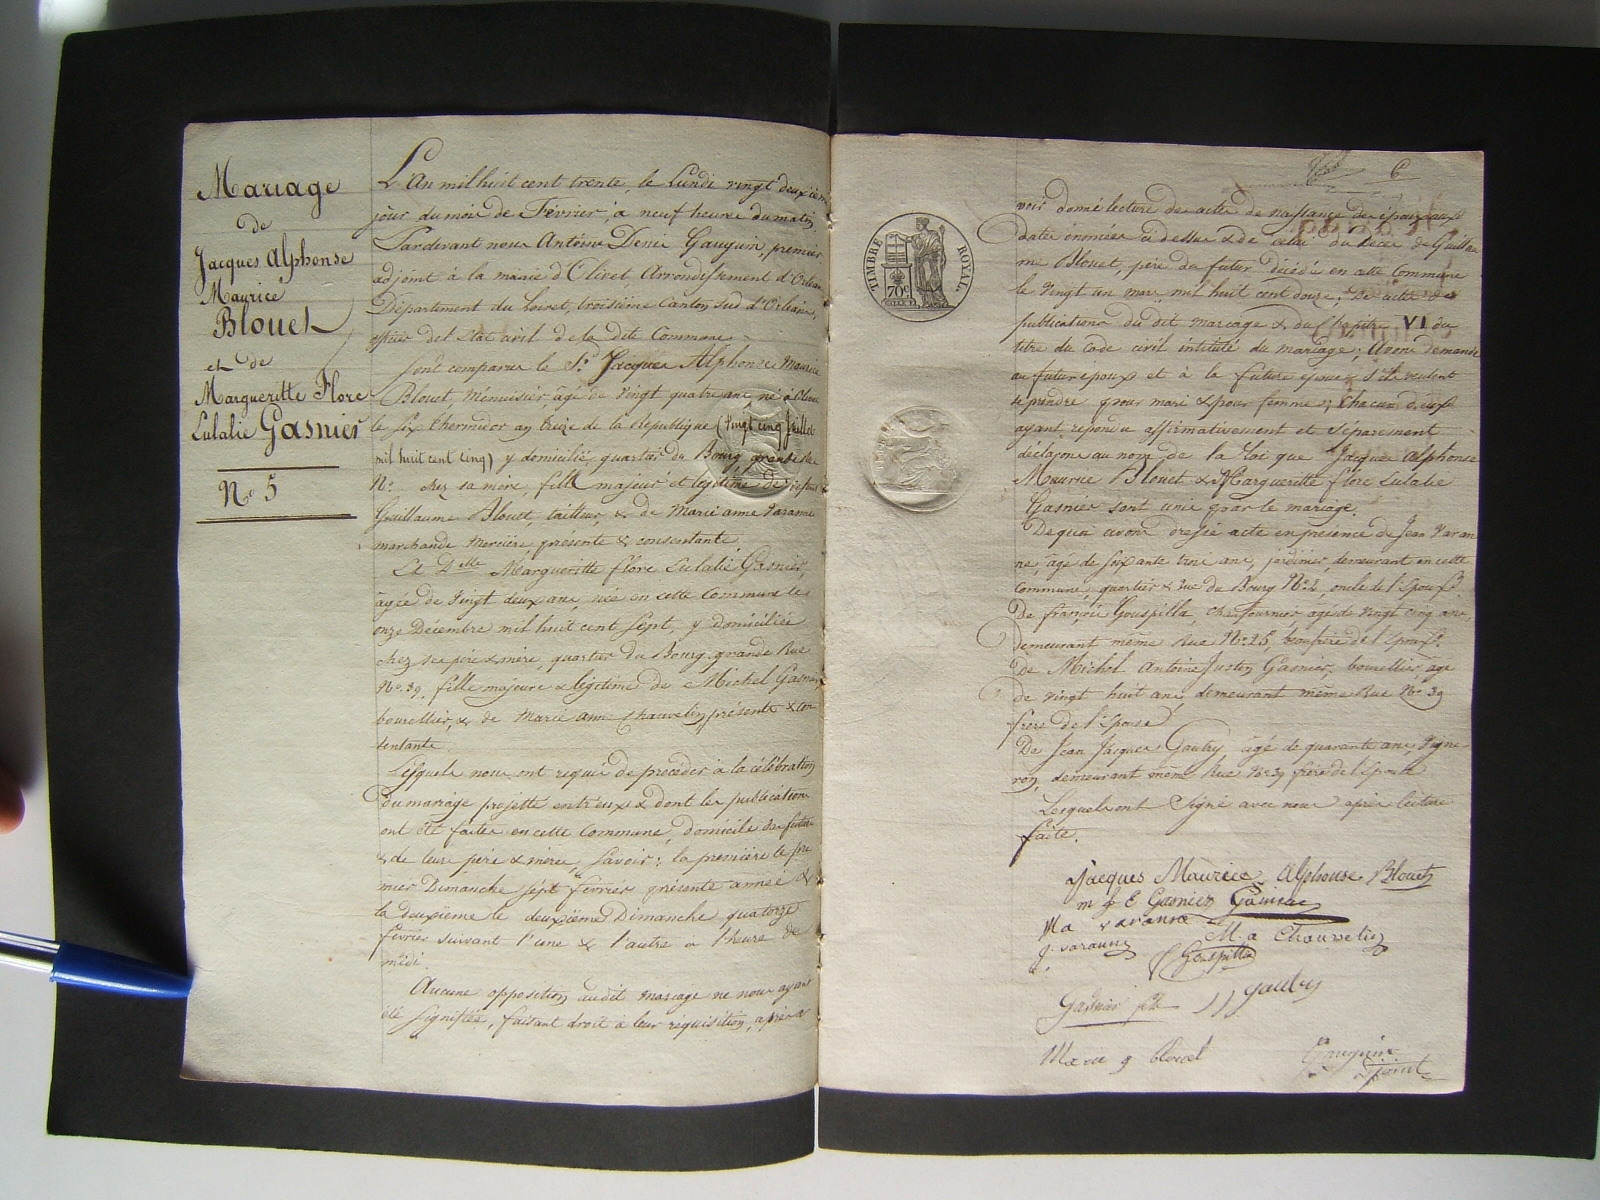 Mariage
de
Jacques Alphonse
Maurice
Blouet
et de
Margueritte Flore
Eulalie Gasnier
No 5
L'An mil huit cent trente, le Lundi vingt deuxième
jour du mois de Février, à neuf heures du matin,
Pardevant nous Antoine Denis Gauguin, premier
adjoint à la mairie d'Olivet, Arrondissement d'Orléans
Département du Loiret, troisième Canton sud d'Orléans,
officier del'Etat civil de la dite Commune
Sont comparus le Sr. Jacques Alphonse Maurice
Blouet, Menuisier, âgé de Vingt quatre ans né à Olivet
le six thermidor an treize de la République (Vingt cinq Juillet
mil huit cent cinq) y domicilié, quartier du Bourg, grande Rue
No. chez sa mère, fils majeur et légitime de
Guillaume Blouet, tailleur, & de Marie anne Varanne
marchande Mercière, présente & consentante
Et Dlle Margueritte flore Eulalie Gasnier,
âgée de Vingt deux ans, née en cette Commune le
onze Décembre mil huit cent Sept, y domiciliée
chez ses père & mère, quartier du Bourg, grande Rue
No. 39, fille majeure & légitime de Michel Gasnier
bourellier, & de Marie anne Chauvelin, présents & con
sentants.
Lesquels nous ont requis de procéder à la célébration
du mariage projetté entr'eux & dont les publications
ont été faites en cette Commune, domicile des futurs
& de leurs père & mères, Savoir: la première le pre
mier Dimanche sept février présente année &
la deuxième le deuxième Dimanche quatorze
février suivant l'une & l'autre à l'heure de
midi.
Aucune opposition audit mariage ne nous ayant
été signifiée, faisant droit à leur réquisition, après a
6
TIMBRE ROYAL.
70c
voir donné lecture des actes de naissance des époux aux
dates énoncées ci dessus & de celui du décès de Guillau
me Blouet, père du futur décédé en cette Commune
le vingt un mars mil huit cent douze; des actes de
publications du dit mariage & du Chapitre VI du
titre du code civil intitulé du mariage; Avons demandé
au futur époux et à la future épouse s'ils veulent
se prendre pour mari & pour femme; Chacun d'eux
ayant répondu affirmativement et Séparement
déclarons au nom de la Loi que Jacques Alphonse
Maurice Blouet & Margueritte flore Eulalie
Gasnier sont unis par le mariage.
De quoi avons dressé acte en présence de Jean Varan
ne, âgé de soixante trois ans, jardinier, demeurant en cette
Commune, quartier & rue du Bourg No. 2, oncle de l'Epoux.
De françois Gouspilla, Chaufournier, âgé de vingt cinq ans,
demeurant même Rue No. 25, beaufrère de l'Epoux.
De Michel Antoine Justin Gasnier, bourellier, âgé
de vingt huit ans, demeurant même Rue No. 39
frère de l'Epouse
De Jean Jacques Gautry âgé de quarante ans, Vigne-
ron, demeurant même Rue No. de l'Epouse
Lesquels ont Signé avec nous après lecture
faite.
Jacques Maurice Alphonse Blouet
m f E Gasnier Gasnier
Ma varanne
M. a Chauvelin
J. varanne
Gouspilla
Gasnier fils JJ gautry
Marie Blouet
Gauguin
adjoint